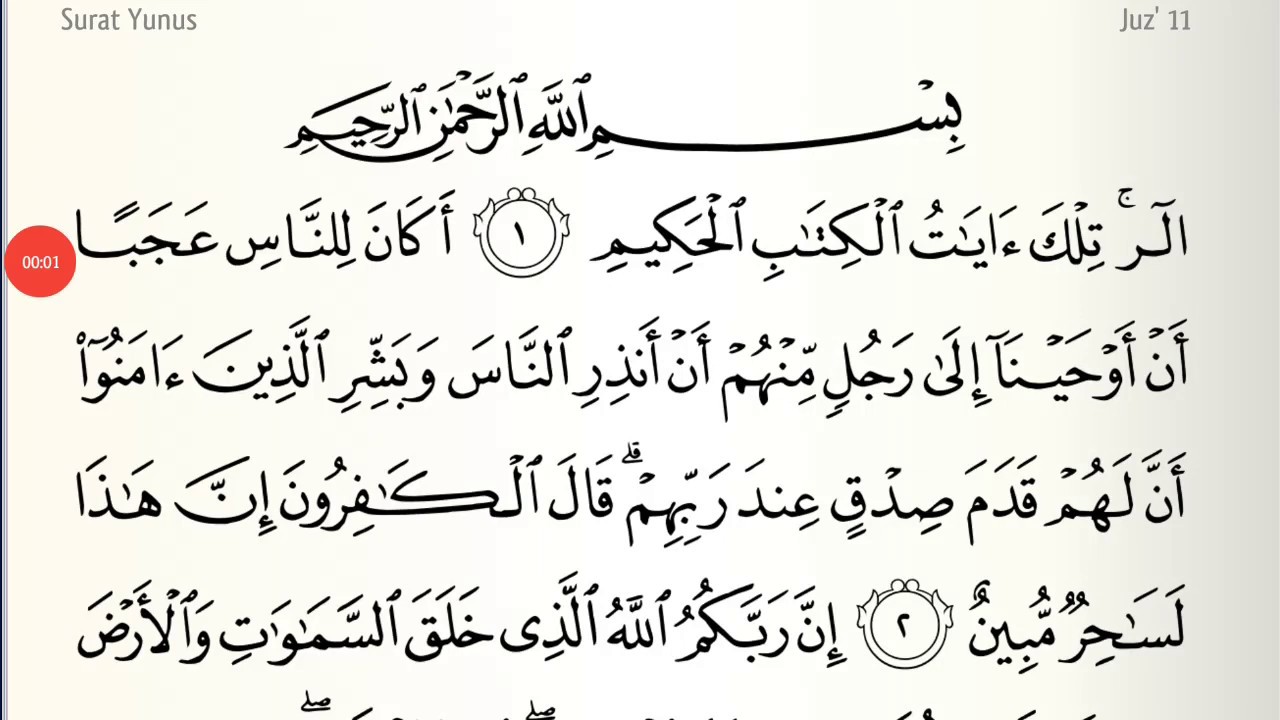 Surat Yunus
Juz' 11
بِسْمِ ٱللَّهِ ٱلرَّحْمَٰنِ ٱلرَّحِيمِ
الٓرۚ تِلْكَ ءَايَٰتُ ٱلْكِتَٰبِ ٱلْحَكِيمِ ١ أَكَانَ لِلنَّاسِ عَجَبًا
00:01
أَنْ أَوْحَيْنَآ إِلَىٰ رَجُلٍ مِّنْهُمْ أَنْ أَنذِرِ ٱلنَّاسَ وَبَشِّرِ ٱلَّذِينَ ءَامَنُوٓا۟
أَنَّ لَهُمْ قَدَمَ صِدْقٍ عِندَ رَبِّهِمْۗ قَالَ ٱلْكَٰفِرُونَ إِنَّ هَٰذَا
لَسَٰحِرٌ مُّبِينٌ ٢ إِنَّ رَبَّكُمُ ٱللَّهُ ٱلَّذِى خَلَقَ ٱلسَّمَٰوَٰتِ وَٱلْأَرْضَ